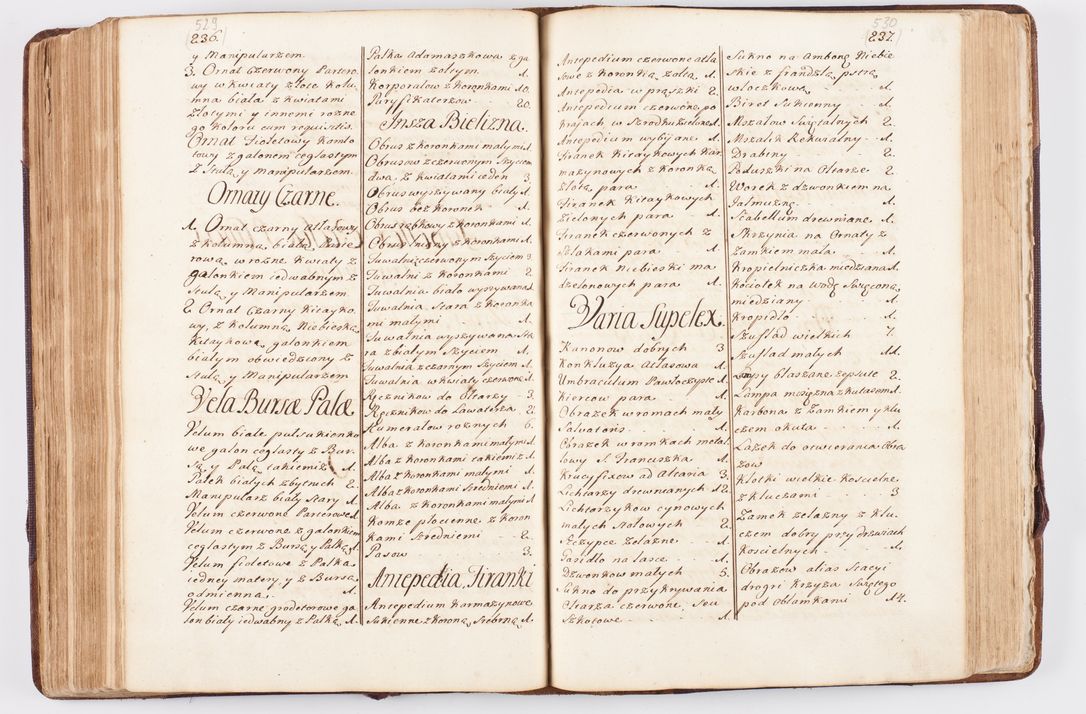 529
236.
y Manipularzem.
3. Ornat Czerwony Partero
wy w kwiaty złote kolu
mna biała z kwiatami
złotymi y innemi rozne
go koloru cum requisitis.
Ornat Fioletowy Kamlo
towy z galonem ceglastym
z Stułą y Manipularzem.
Ornaty Czarne.
1. Ornat czarny Atłasowy
z kolumną białą Parte
rową w rozne kwiaty z
galonkiem iedwabnym z
Stułą y Manipularzem
2. Ornat Czarny Kitayko
wy, z kolumną Niebieską
Kitaykową, galonkiem
białym obwiedziony z
Stułą y Manipularzem
Vela Bursæ Palæ
Velum białe pułsukienko
we galon ceglasty z Bur
są y Palą takiemiz 1.
Palek białych zbytnich 2.
Manipularz biały Stary 1.
Velum czerwone Parterowe 1.
Velum czerwone z galonkiem
ceglastym z Bursą y Palką 1.
Velum fioletowe z Palką
iedney matery y z Bursą
odmienną 1.
Velum czarne grodetorowe ga
lon biały iedwabny z Palką 1.
Palka Adamaszkowa z ga
lonkiem zołtym 1.
Korporałow z koronkami 10.
Puryfikaterzow 20.
Insza Bielizna.
Obrus z koronkami małymi 1.
Obrusow z czerwonym Szyciem
dwa z kwiatami ieden 3
Obrus wyszywany biały 1.
Obrus bez koronek 1.
Obrus rąbkowy z koronkami 1.
Obrus lniany z koronkami 1.
Tuwalni z czerwonym Szyciem 3.
Tuwalni z koronkami 2.
Tuwalnia biało wyszywana 1.
Tuwalnia Stara z koronka
mi małymi 1.
Tuwalnia wyszywana Sta
ra z białym Szyciem 1.
Tuwalnia z czarnym Szyciem 1.
Tuwalnia w kwiaty czerwone 1.
Ręcznikow do Ołtarzy 3.
Ręcznikow do Lawaterza 2.
Humerałow roznych 6.
Alba z koronkami małymi 1.
Alba z koronkami takiemiz 1.
Alba z koronkami małymi 1.
Alba z koronkami Sredniemi 1.
Alba z koronkami małymi 1.
Komze płocienne z koron
kami Sredniemi 2.
Pasow 3.
Antepedia Firanki
Antepedium karmazynowe
Sukienne z koroną Srebrną 1.
530
237.
Antepedium czerwone atła
sowe z koronką zołtą 1.
Antepedia w prązki 2.
Antepedium czerwone po
krajach w Srodku zielone 1.
Antepedium wybijane 1.
Firanek Kitaykowych Kar
mazynowych z koronką
złotą para 1.
Firanek Kitaykowych
zielonych para 1.
Firanek czerwonych z
Szlakami para 1.
Firanek Niebieski ma
dzelonowych para 1.
Varia Supelex.
Kanonow dobrych 3
Konkluzya Atłasowa 1.
Umbraculum Pawłoczyste 1.
Kiercow para 1.
Obrazek w ramach mały
Salvatoris 1.
Obrazek w ramkach metal
lowy S. Franciszka 1.
Krucyfixow ad Altaria 3.
Lichtarzy drewnianych 12.
Lichtarzykow cynowych
małych Stołowych 2.
Szczypce Zelazne 1.
Gasidło na lasce 1.
Dzwonkow małych 5.
Sukno do przykrywania
Ołtarza czerwone, seu
Szkotowe 1.
Sukno na Ambonę Niebie
skie z frandzlą pstrą
włoczkową 1.
Biret Sukienny 1.
Mszałow Swiętalnych 2.
Mszalik Rekwialny 1.
Drabiny 2.
Poduszki na Ołtarze 2.
Worek z dzwonkiem na
Jałmuznę 1.
Scabellum drewniane 1.
Skrzynia na Ornaty z
Zamkiem mała 1.
Kropielniczka miedziana 1.
Kociołek na wodę Swięconą
miedziany 1.
Kropidło 1.
Szuflad wielkich 7.
Szuflad małych 11.
Lampy blaszane zepsute 2.
Lampa mosięzna z kutasem 1.
Karbona z Zamkiem y klu
czem okuta 1.
Laska do otwierania Obra
zow 1.
Kłotki wielkie koscielne
z kluczami 3
Zamek zelazny z klu
czem dobry przy drzwiach
koscielnych 1.
Obrazow alias Stacyi
drogi krzyza Swiętego
pod obłamkami 14.